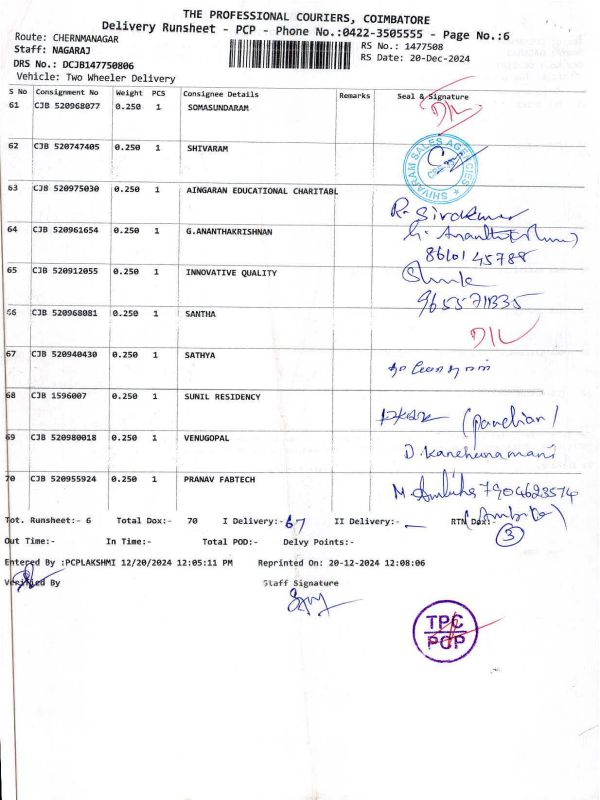 THE PROFESSIONAL COURIERS, COIMBATORE
Delivery Runsheet - PCP - Phone No.:0422-3505555 - Page No.:6
Route: CHERNMANAGAR
Staff: NAGARAJ
DRS No.: DCJB147750806
Vehicle: Two Wheeler Delivery
RS No.: 1477508
RS Date: 20-Dec-2024
S No Consignment No Weight PCS Consignee Details Remarks Seal & Signature
61 CJB 520968077 0.250 1 SOMASUNDARAM D/L
62 CJB 520747405 0.250 1 SHIVARAM SHIVARAM SALES AGENCIES CBE
63 CJB 520975030 0.250 1 AINGARAN EDUCATIONAL CHARITABL R. Sivakumar
64 CJB 520961654 0.250 1 G.ANANTHAKRISHNAN
8610145788
65 CJB 520912055 0.250 1 INNOVATIVE QUALITY
9655711335
66 CJB 520968081 0.250 1 SANTHA D/L
67 CJB 520940430 0.250 1 SATHYA
68 CJB 1596007 0.250 1 SUNIL RESIDENCY (Pandian)
69 CJB 520980018 0.250 1 VENUGOPAL D. Kanchanamani
70 CJB 520955924 0.250 1 PRANAV FABTECH M. Ambika 7904623574
(Ambika)
Tot. Runsheet:- 6 Total Dox:- 70 I Delivery:- 67 II Delivery:- – RTN Dox:- 3
Out Time:- In Time:- Total POD:- Delvy Points:-
Entered By :PCPLAKSHMI 12/20/2024 12:05:11 PM Reprinted On: 20-12-2024 12:08:06
Verified By Staff Signature
TPC
PCP